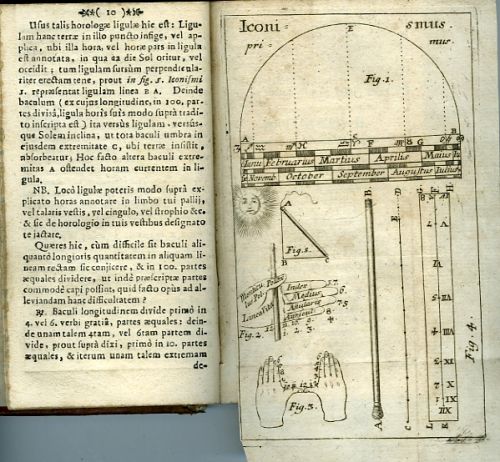 ( 10 )
Usus talis horologæ ligulæ hic est: Ligu-
lam hanc terræ in illo puncto infige, vel ap-
plica, ubi illa hora, vel horæ pars in ligula
est annotata, in qua ea die Sol oritur, vel
occidit; tum ligulam sursùm perpendicula-
riter erectam tene, prout in fig. 1. Iconismi
1. repræsentat ligulam linea B A. Deinde
baculum (ex cujus longitudine, in 100. par-
tes divisâ, ligula horis suis modo suprà tradi-
to inscripta est) ita versùs ligulam, versús-
que Solem inclina, ut tota baculi umbra in
ejusdem extremitate C, ubi terræ insistit,
absorbeatur; Hoc facto altera baculi extre-
mitas A ostendet horam currentem in li-
gula.
NB. Locô ligulæ poteris modo suprà ex-
plicato horas annotare in limbo tui pallii,
vel talaris vestis, vel cingulo, vel strophio &c.
& sic de horologio in tuis vestibus designato
te jactare.
Quæres hic, cùm difficile sit baculi ali-
quantò longioris quantitatem in aliquam li-
neam rectam sic conjicere, & in 100. partes
æquales dividere, ut indè præscriptæ partes
commodè capi possint, quid facto opus ad al-
leviandam hanc difficultatem?
℞. Baculi longitudinem divide primò in
4. vel 6. verbi gratiâ, partes æquales: dein-
de unam talem 4tam, vel 6tam partem divi-
de, prout suprà dixi, primò in 10. partes
æquales, & iterum unam talem extremam
de-
Iconi= smus
pri= mus.
E
Fig. 1.
A
Februarius Martius Aprilis Maius
Novemb. October September Augustus Iulius
A
B
C
Fig. 1.
Index
Medius
Fig. 2.
Fig. 3.
B
A
E
C
Fig. 4
XI
X
IX
L